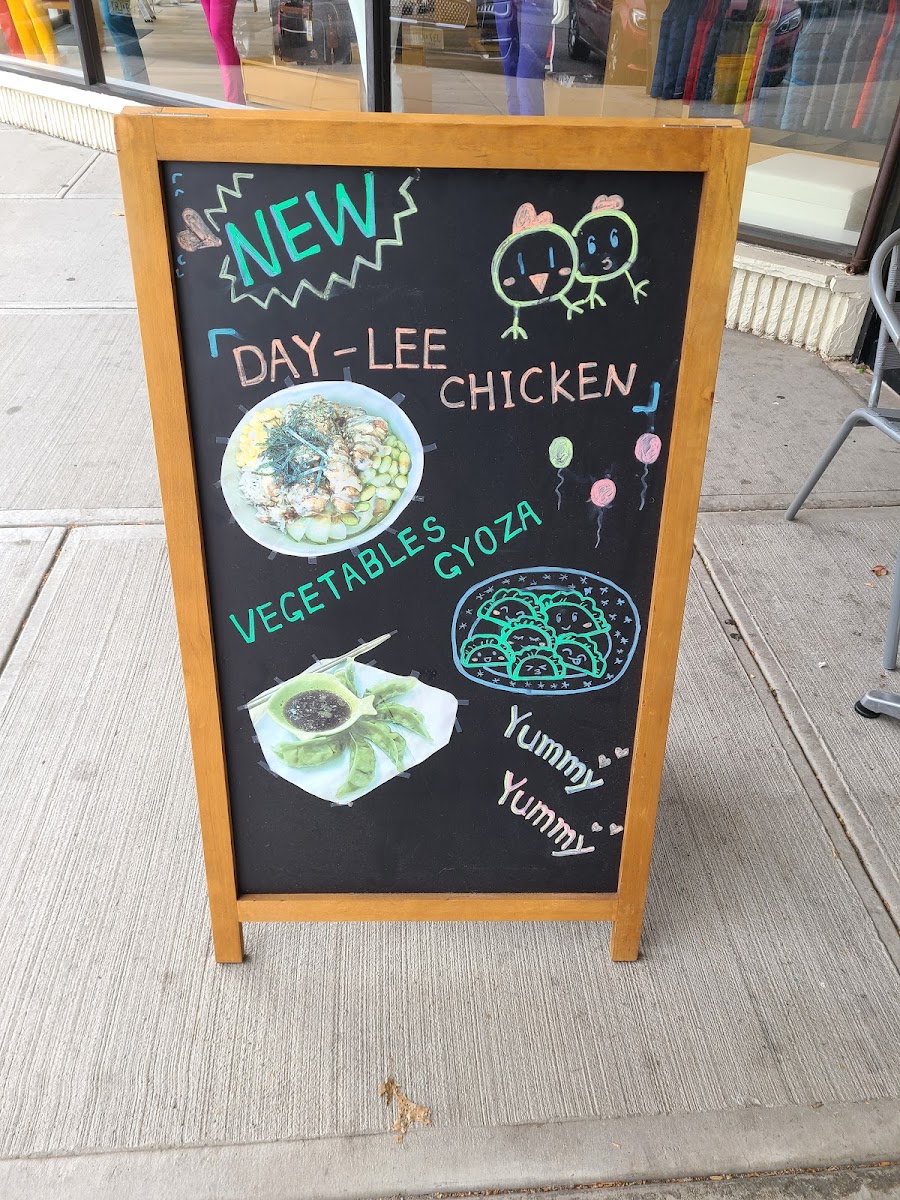 NEW
「DAY-LEE
CHICKEN」
VEGETABLES
GYOZA
Yummy
Yummy